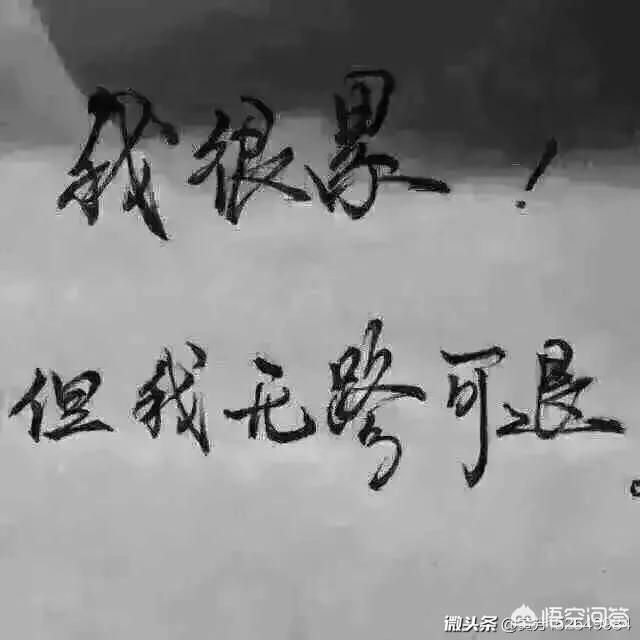 我很累！
但我无路可退。
微头条
悟空问答